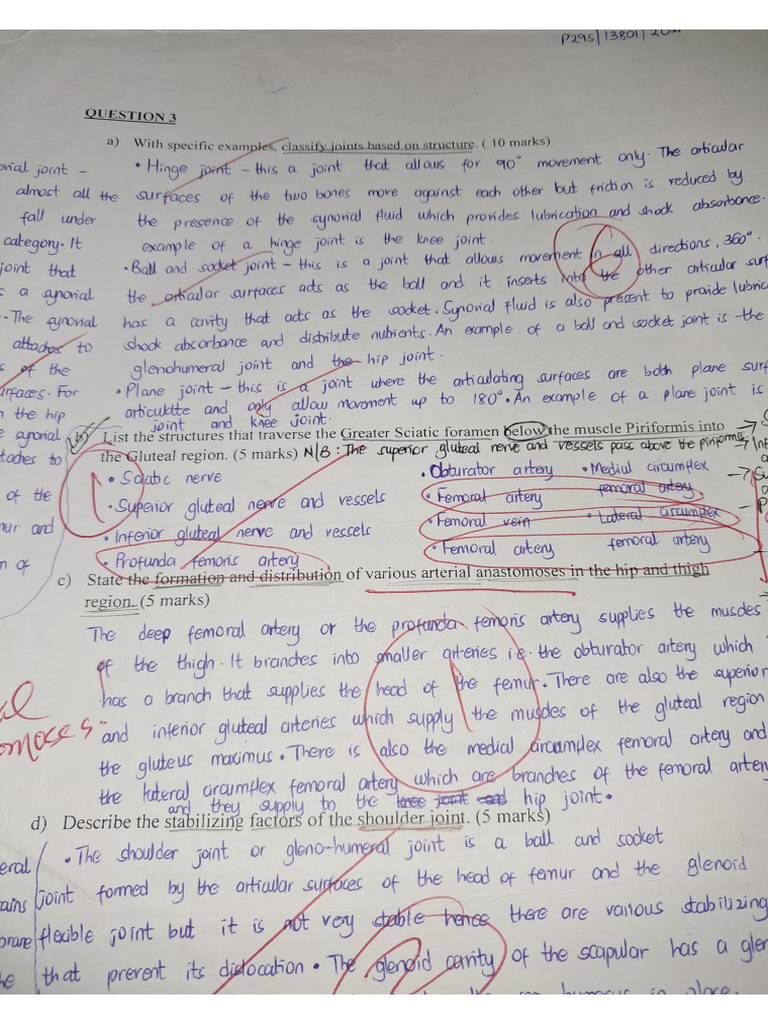 P295/13801/202
QUESTION 3
a) With specific examples, classify joints based on structure. ( 10 marks)
ovial joint -
almost all the
fall under
category. It
joint that
s a synovial
. The synovial
attaches to
s of the
rfaces. For
n the hip
e synovial
ttaches to
of the
mur and
n of
• Hinge joint - this a joint that allows for 90° movement only. The articular
surfaces of the two bones move against each other but friction is reduced by
the presence of the synovial fluid which provides lubrication and shock absorbance.
example of a hinge joint is the knee joint.
• Ball and socket joint - this is a joint that allows movement in all directions, 360°.
the articular surfaces acts as the ball and it inserts into the other articular surf
has a cavity that acts as the socket. Synovial fluid is also present to provide lubric
shock absorbance and distribute nutrients. An example of a ball and socket joint is the
glenohumeral joint and the hip joint.
• Plane joint - this is a joint where the articulating surfaces are both plane surf
articulatte and only allow movement up to 180°. An example of a plane joint is
joint and knee joint.
6
b) List the structures that traverse the Greater Sciatic foramen below the muscle Piriformis into
the Gluteal region. (5 marks) N/B: The superior gluteal nerve and vessels pass above the piriformis
• Sciatic nerve
• Superior gluteal nerve and vessels
• Inferior gluteal nerve and vessels
• Profunda femoris artery
• Obturator artery
• Femoral artery
• Femoral vein
• Femoral artery
• Medial circumflex
femoral artery
• Lateral circumflex
femoral artery
1
c) State the formation and distribution of various arterial anastomoses in the hip and thigh
region. (5 marks)
The deep femoral artery or the profunda femoris artery supplies the muscles
of the thigh. It branches into smaller arteries i.e. the obturator artery which
has a branch that supplies the head of the femur. There are also the superior
and inferior gluteal arteries which supply the muscles of the gluteal region
the gluteus maximus. There is also the medial circumflex femoral artery and
the lateral circumflex femoral artery which are branches of the femoral arter
and they supply to the knee joint and hip joint.
1
omoses
d) Describe the stabilizing factors of the shoulder joint. (5 marks)
• The shoulder joint or gleno-humeral joint is a ball and socket
joint formed by the articular surfaces of the head of femur and the glenoid
flexible joint but it is not very stable hence there are various stabilizing
that prevent its dislocation. The glenoid cavity of the scapular has a glen
eral
ains
brane